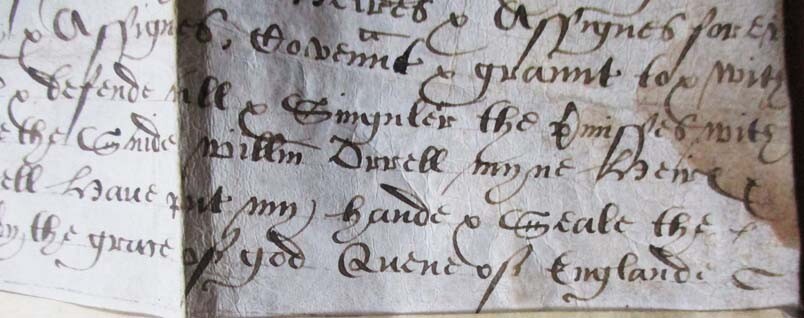 heires & Assignes forev
& Assignes, Covennt & graunt to & with
& defende all & Singuler the p'misses with
the Saide Willm Orrell myne Heires &
ell Have put my hande & Seale the
by the grace of god Quene of Englande